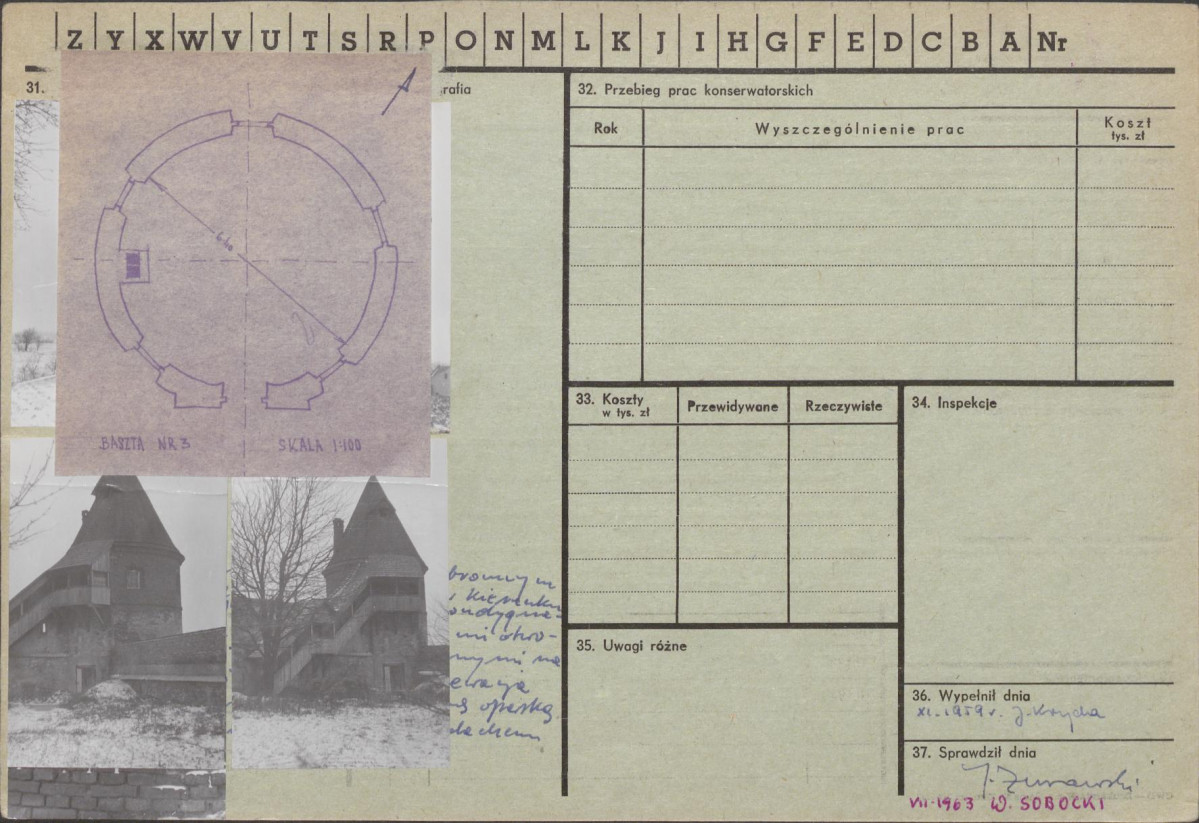 Z Y X W V U T S R P O N M L K J I H G F E D C B A Nr
31.
rafia
6.40
BASZTA NR 3 SKALA 1:100
bronnym
kierunku
ewacja
opaską
dachem
32. Przebieg prac konserwatorskich
Rok Wyszczególnienie prac Koszt
tys. zł
33. Koszty
w tys. zł
Przewidywane Rzeczywiste
34. Inspekcje
35. Uwagi różne
36. Wypełnił dnia
XI. 1959 r. J. Krzycha
37. Sprawdził dnia
J. Żurawski
VII-1963 W. SOBOCKI